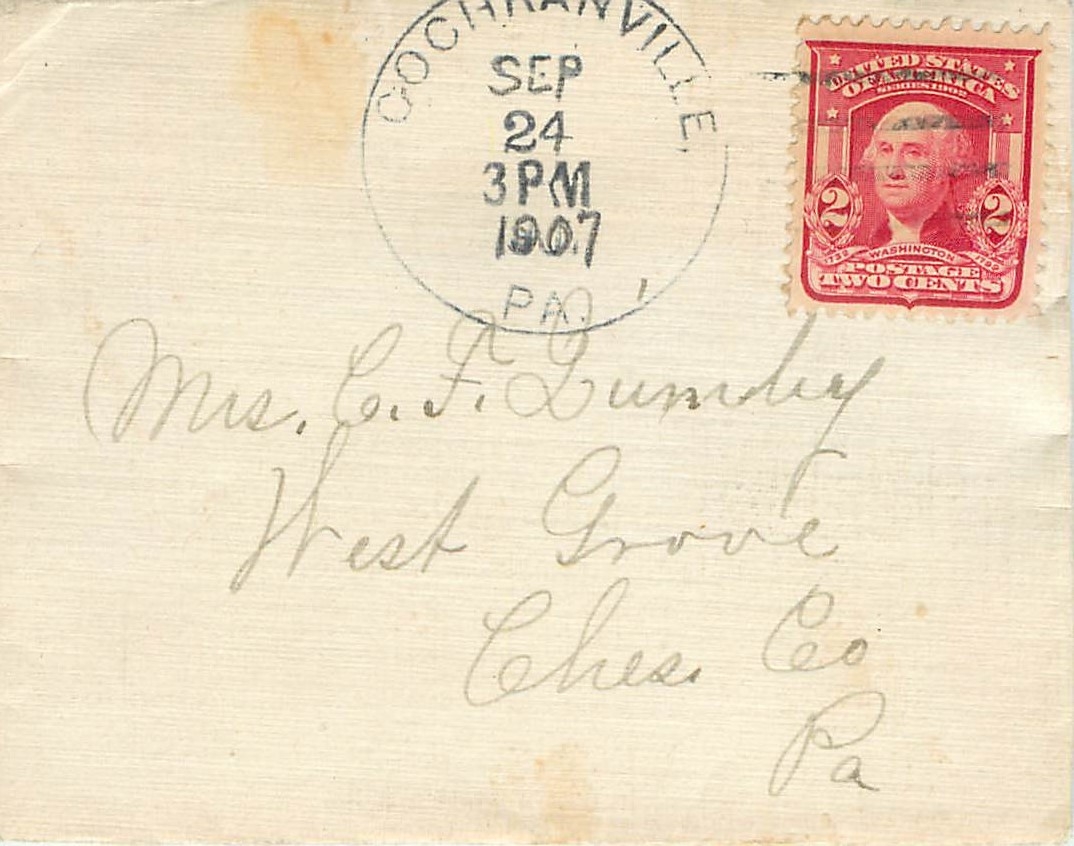 COCHRANVILLE,
SEP
24
3 PM
1907
PA.
UNITED STATES
OF AMERICA
SERIES 1902
2 2
1732 WASHINGTON 1799
POSTAGE
TWO CENTS
Mrs. C. F. Lumby
West Grove
Ches. Co
Pa